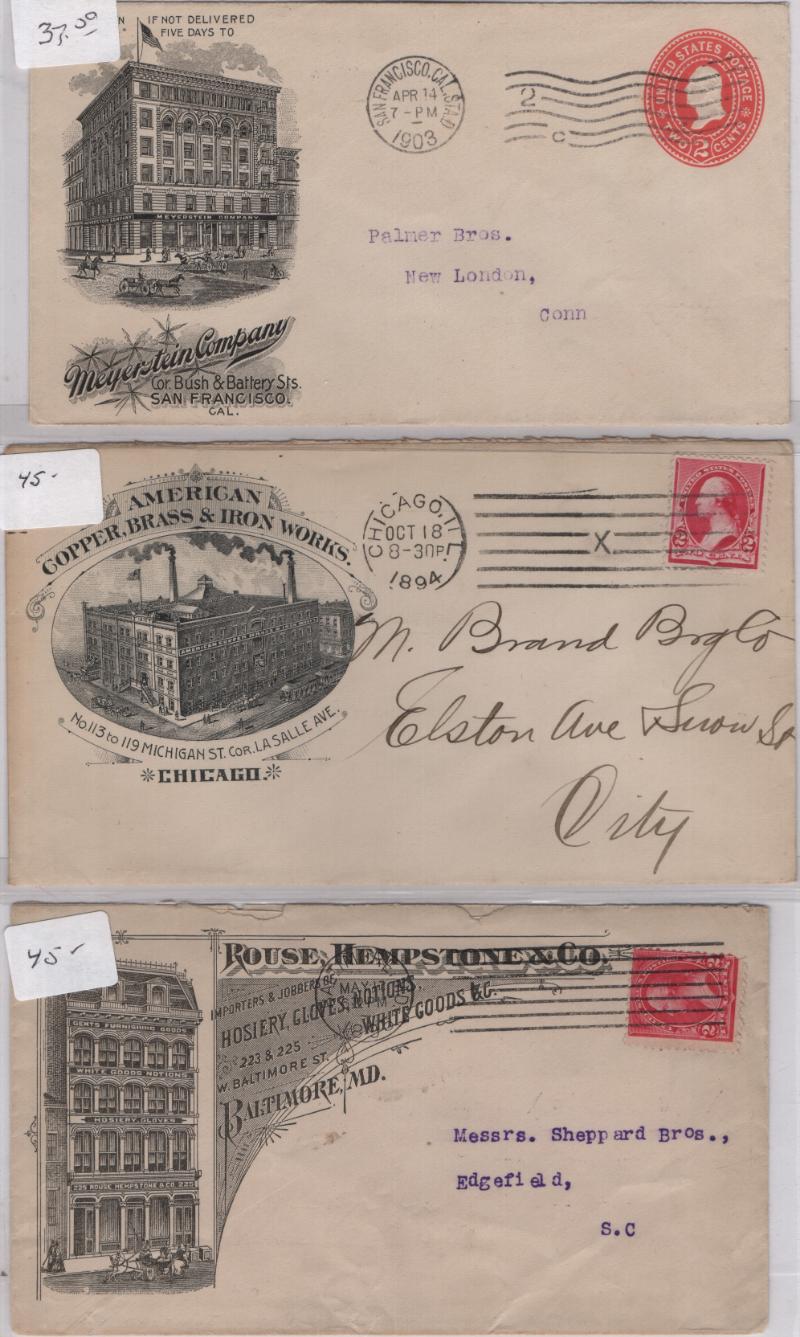 37.00
IF NOT DELIVERED
FIVE DAYS TO
MEYERSTEIN COMPANY
Meyerstein Company
Cor. Bush & Battery Sts.
SAN FRANCISCO.
CAL.
SAN FRANCISCO, CAL. STA. D
APR 14
7-PM
1903
2
C
UNITED STATES POSTAGE
TWO 2 CENTS
Palmer Bros.
New London,
Conn
45-
AMERICAN
COPPER, BRASS & IRON WORKS.
No. 113 to 119 MICHIGAN ST. COR. LA SALLE AVE.
CHICAGO.
CHICAGO, ILL.
OCT 18
8-30P
1894
X
2 2
M. Brand Brg Co
Elston Ave & Snow St
City
45-
ROUSE, HEMPSTONE & CO.
IMPORTERS & JOBBERS OF
HOSIERY, GLOVES, NOTIONS,
WHITE GOODS &C.
223 & 225
W. BALTIMORE ST.
BALTIMORE, MD.
MAY
GENTS FURNISHING GOODS
WHITE GOODS NOTIONS
HOSIERY, GLOVES
225 ROUSE HEMPSTONE & CO. 225
Messrs. Sheppard Bros.,
Edgefield,
S.C